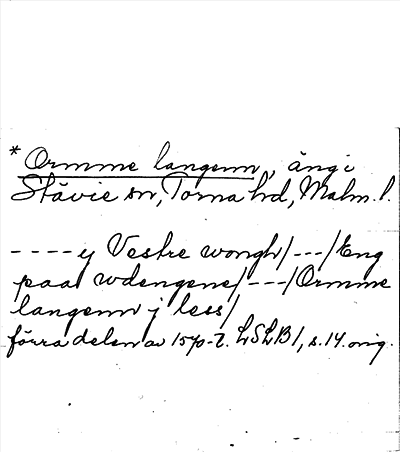 * Ormme langenn, äng i
Stävie sn, Torna hd, Malm. l.
----y Vestre wongh/---/Eng
paa wdengene/---/Ormme
langenn j less/
förra delen av 1570-t. LSLB 1, s. 14. orig.